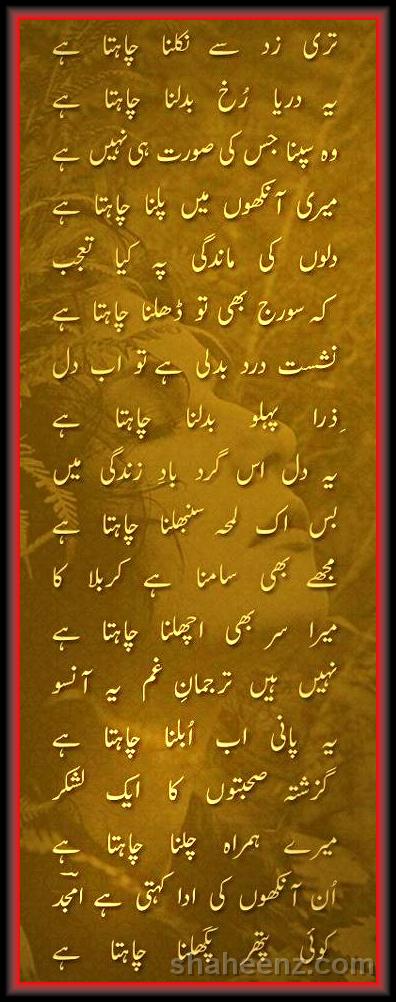 تری زد سے نکلنا چاہتا ہے
یہ دریا رُخ بدلنا چاہتا ہے
وہ سپنا جس کی صورت ہی نہیں ہے
میری آنکھوں میں پلنا چاہتا ہے
دلوں کی ماندگی پہ کیا تعجب
کہ سورج بھی تو ڈھلنا چاہتا ہے
نشست درد بدلی ہے تو اب دل
ذرا پہلو بدلنا چاہتا ہے
یہ دل اس گرد بادِ زندگی میں
بس اک لمحہ سنبھلنا چاہتا ہے
مجھے بھی سامنا ہے کربلا کا
میرا سر بھی اچھلنا چاہتا ہے
نہیں ہیں ترجمانِ غم یہ آنسو
یہ پانی اب اُبلنا چاہتا ہے
گزشتہ صحبتوں کا ایک لشکر
میرے ہمراہ چلنا چاہتا ہے
اُن آنکھوں کی ادا کہتی ہے امجدؔ
کوئی پتھر پگھلنا چاہتا ہے
shaheenz.com